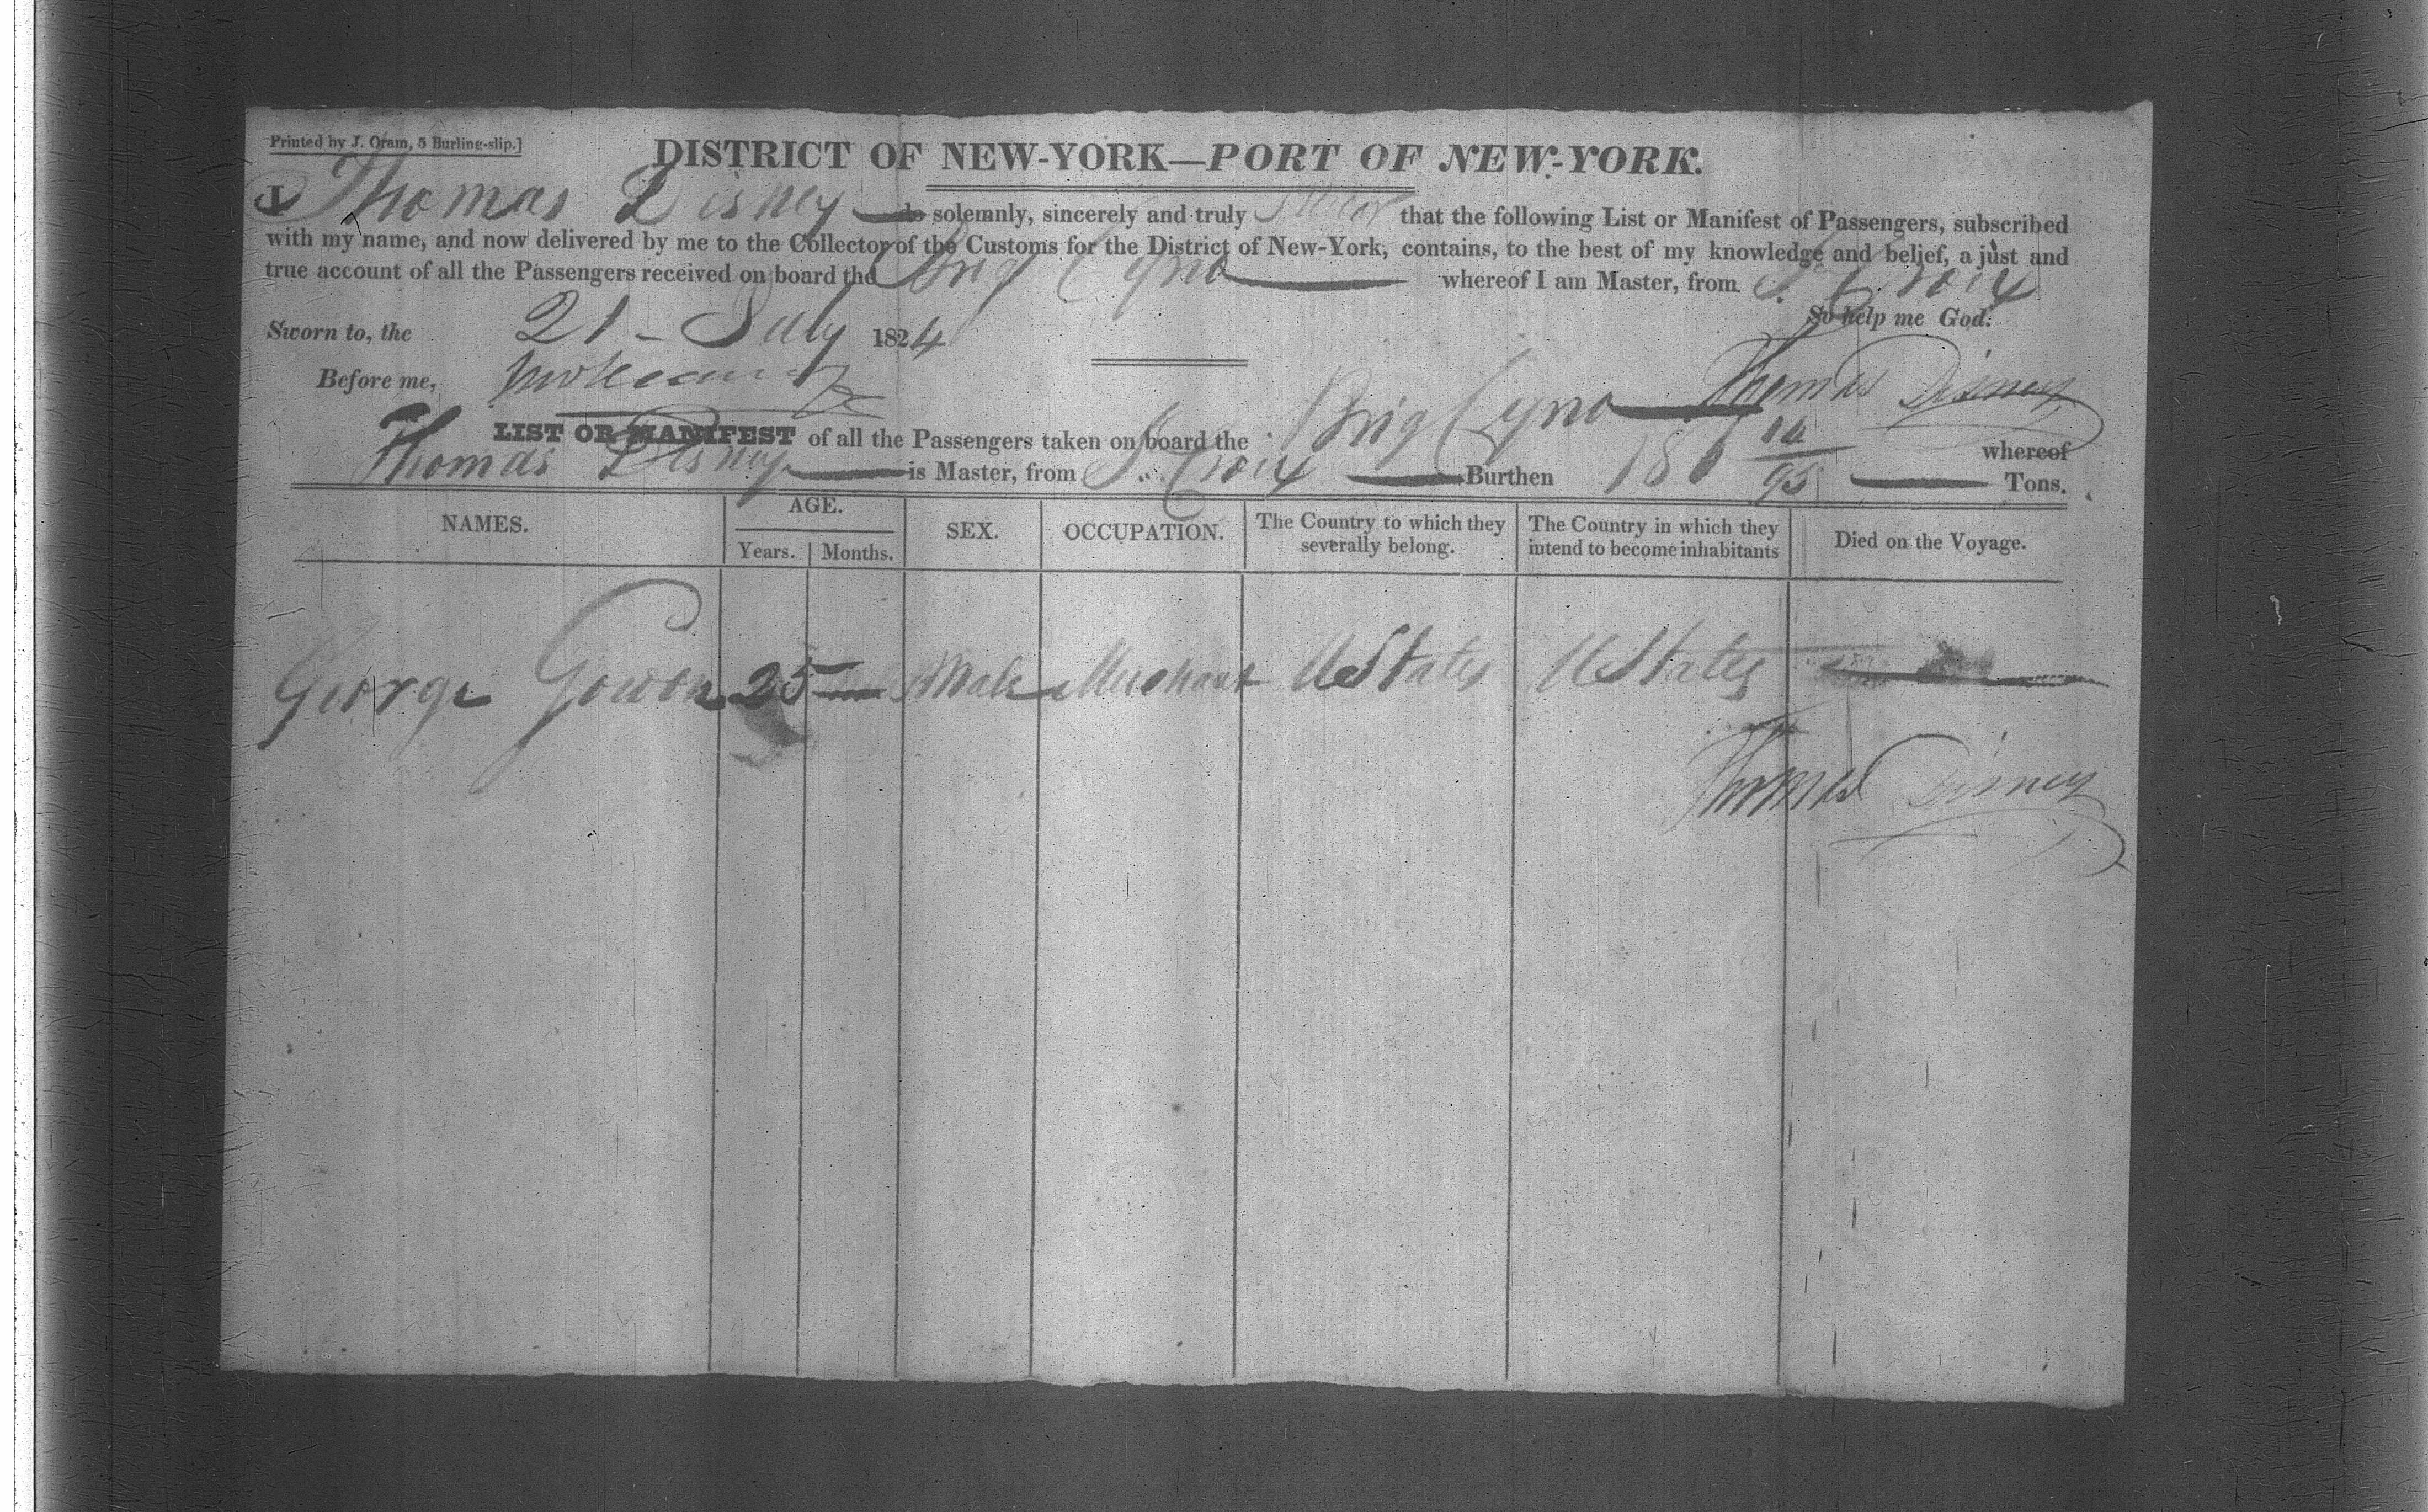 Printed by J. Oram, 5 Burling-slip.]
DISTRICT OF NEW-YORK—PORT OF NEW-YORK.
I Thomas Disney do solemnly, sincerely and truly Swear that the following List or Manifest of Passengers, subscribed
with my name, and now delivered by me to the Collector of the Customs for the District of New-York, contains, to the best of my knowledge and belief, a just and
true account of all the Passengers received on board the Brig Cyno whereof I am Master, from St Croix
So help me God.
Sworn to, the 21 - July 1824
Before me,
Thomas Disney
LIST OR MANIFEST of all the Passengers taken on board the Brig Cyno whereof
Thomas Disney is Master, from St Croix Burthen Tons.
NAMES. AGE. SEX. OCCUPATION. The Country to which they severally belong. The Country in which they intend to become inhabitants Died on the Voyage.
Years. Months.
George Gowon 25 Male Merchant UStates UStates
Thomas Disney